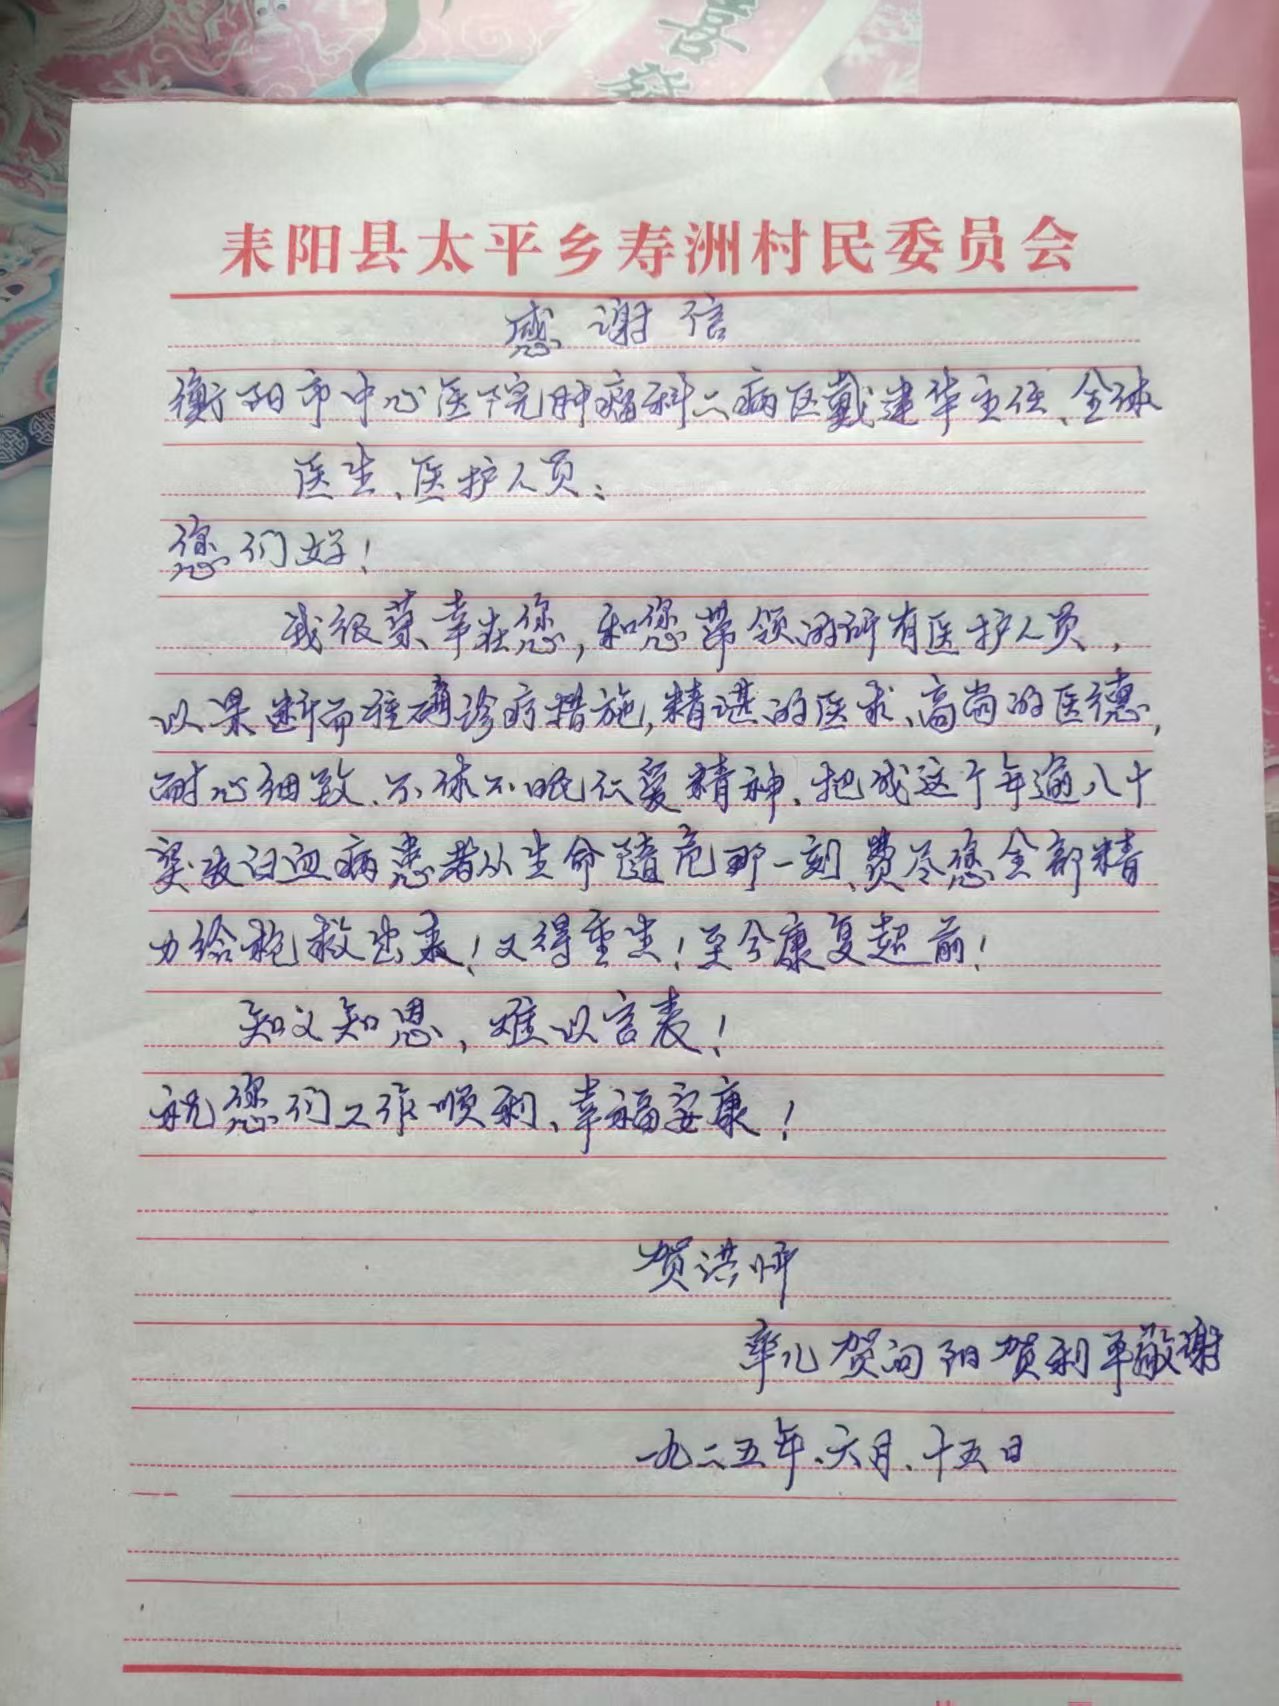 耒阳县太平乡寿洲村民委员会
感谢信
衡阳市中心医院肿瘤科二病区戴建华主任、全体
医生、医护人员：
您们好！
我很荣幸在您，和您带领的所有医护人员，
以果断而准确诊疗措施，精湛的医术、高尚的医德，
耐心细致、不休不眠仁爱精神、把我这个年逾八十
岁 白血病患者从生命随危那一刻、费尽您全部精
力给抢救出来！又得重生！至今康复超前！
知义知恩，难以言表！
祝您们工作顺利、幸福安康！
贺洪
率儿贺向阳贺利平敬谢
一九二五年、六月、十五日